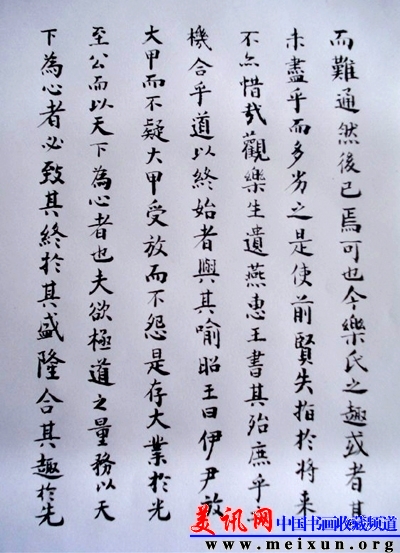 而難通然後已焉可也今樂氏之趣或者其
未盡乎而多劣之是使前賢失指於将来
不亦惜哉觀樂生遺燕惠王書其殆庶乎
機合乎道以終始者與其喻昭王曰伊尹放
大甲而不疑大甲受放而不怨是存大業於
至公而以天下為心者也夫欲極道之量務以天
下為心者必致其終於其盛隆合其趣於先
美讯网 中国书画收藏频道
www.meixun.org